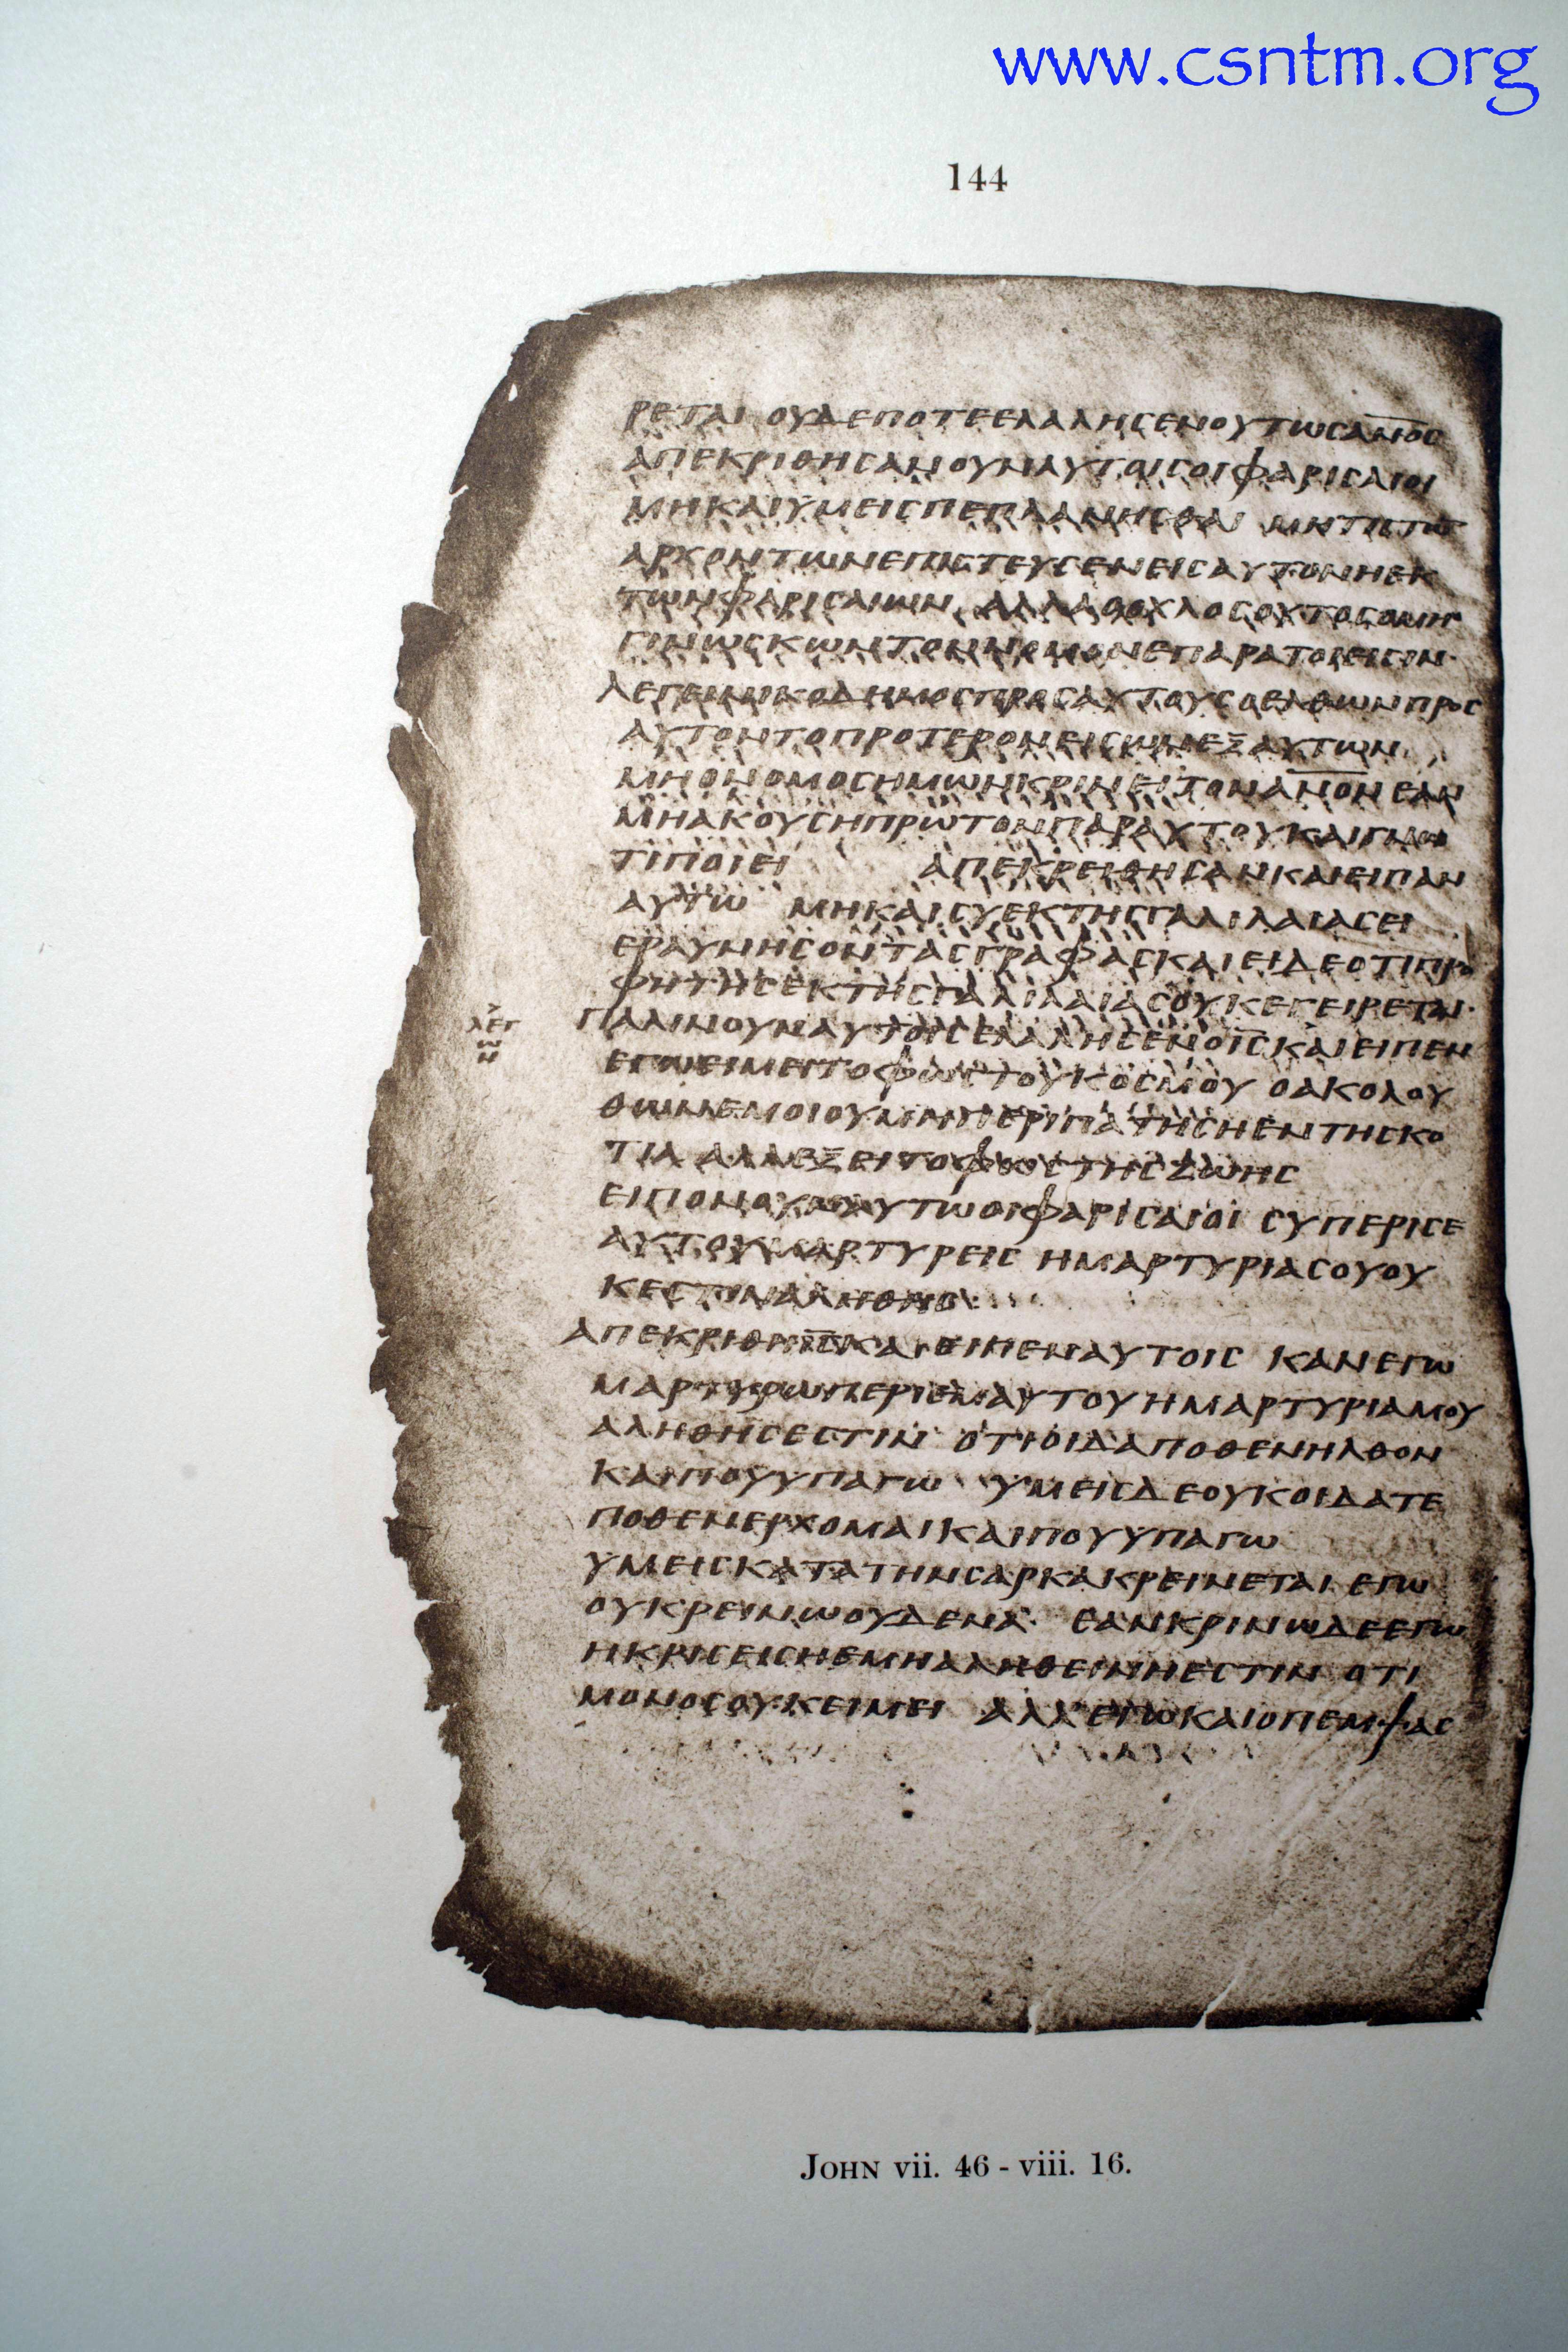 www.csntm.org
144
ΡΕΤΑΙ ΟΥΔΕΠΟΤΕΕΛΑΛΗϹΕΝΟΥΤΩϹΑΝΟ̅Ϲ
ΑΠΕΚΡΙΘΗϹΑΝΟΥΝΑΥΤΟΙϹΟΙΦΑΡΙϹΑΙΟΙ
ΜΗΚΑΙΥΜΕΙϹΠΕΠΛΑΝΗϹΘΑΙ ΜΗΤΙϹΤΩ̅
ΑΡΧΟΝΤΩΝΕΠΙϹΤΕΥϹΕΝΕΙϹΑΥΤΟΝΗΕΚ
ΤΩΝΦΑΡΙϹΑΙΩΝ ΑΛΛΑΟΟΧΛΟϹΟΥΤΟϹΟΜΗ
ΓΙΝΩϹΚΩΝΤΟΝΝΟΜΟΝΕΠΑΡΑΤΟΙΕΙϹΙΝ·
ΛΕΓΕΙΝΙΚΟΔΗΜΟϹΠΡΟϹΑΥΤΟΥϹΟΕΛΘΩΝΠΡΟϹ
ΑΥΤΟΝΤΟΠΡΟΤΕΡΟΝΕΙϹΩΝΕΞΑΥΤΩΝ
ΜΗΟΝΟΜΟϹΗΜΩΝΚΡΙΝΕΙΤΟΝΑΝ̅Ο̅Ν̅ΕΑΝ
ΜΗΑΚΟΥϹΗΠΡΩΤΟΝΠΑΡΑΥΤΟΥΚΑΙΓΝΩ
ΤΙΠΟΙΕΙ ΑΠΕΚΡΕΙΘΗϹΑΝΚΑΙΕΙΠΑΝ
ΑΥΤΩ ΜΗΚΑΙϹΥΕΚΤΗϹΓΑΛΙΛΑΙΑϹΕΙ
ΕΡΑΥΝΗϹΟΝΤΑϹΓΡΑΦΑϹΚΑΙΕΙΔΕΟΤΙΠΡΟ
ΦΗΤΗϹΕΚΤΗϹΓΑΛΙΛΑΙΑϹΟΥΚΕΓΕΙΡΕΤΑΙ·
ΠΑΛΙΝΟΥΝΑΥΤΟΙϹΕΛΑΛΗϹΕΝΟΙ̅Ϲ̅ΚΑΙΕΙΠΕΝ
ΛΕΓ
Ω
Ν
ΕΓΩΕΙΜΕΙΤΟΦΩϹΤΟΥΚΟϹΜΟΥ ΟΑΚΟΛΟΥ
ΘΩΝΕΜΟΙΟΥΜΗΠΕΡΙΠΑΤΗϹΗΕΝΤΗϹΚΟ
ΤΙΑ ΑΛΛΕΞΕΙΤΟΦΩϹΤΗϹΖΩΗϹ
ΕΙΠΟΝΟΥΝΑΥΤΩΟΙΦΑΡΙϹΑΙΟΙ ϹΥΠΕΡΙϹΕ
ΑΥΤΟΥΜΑΡΤΥΡΕΙϹ ΗΜΑΡΤΥΡΙΑϹΟΥΟΥ
ΚΕϹΤΙΝΑΛΗΘΗϹ
ΑΠΕΚΡΙΘΗΙ̅Ϲ̅ΚΑΙΕΙΠΕΝΑΥΤΟΙϹ ΚΑΝΕΓΩ
ΜΑΡΤΥΡΩΠΕΡΙΕΜΑΥΤΟΥΗΜΑΡΤΥΡΙΑΜΟΥ
ΑΛΗΘΗϹΕϹΤΙΝ ΟΤΙΟΙΔΑΠΟΘΕΝΗΛΘΟΝ
ΚΑΙΠΟΥΥΠΑΓΩ ΥΜΕΙϹΔΕΟΥΚΟΙΔΑΤΕ
ΠΟΘΕΝΕΡΧΟΜΑΙΚΑΙΠΟΥΥΠΑΓΩ
ΥΜΕΙϹΚΑΤΑΤΗΝϹΑΡΚΑΚΡΕΙΝΕΤΑΙ ΕΓΩ
ΟΥΚΡΕΙΝΩΟΥΔΕΝΑ· ΕΑΝΚΡΙΝΩΔΕΕΓΩ
ΗΚΡΙϹΕΙϹΗΕΜΗΑΛΗΘΕΙΝΗΕϹΤΙΝ ΟΤΙ
ΜΟΝΟϹΟΥΚΕΙΜΕΙ ΑΛΛΕΓΩΚΑΙΟΠΕΜΨΑϹ
JOHN vii. 46 - viii. 16.